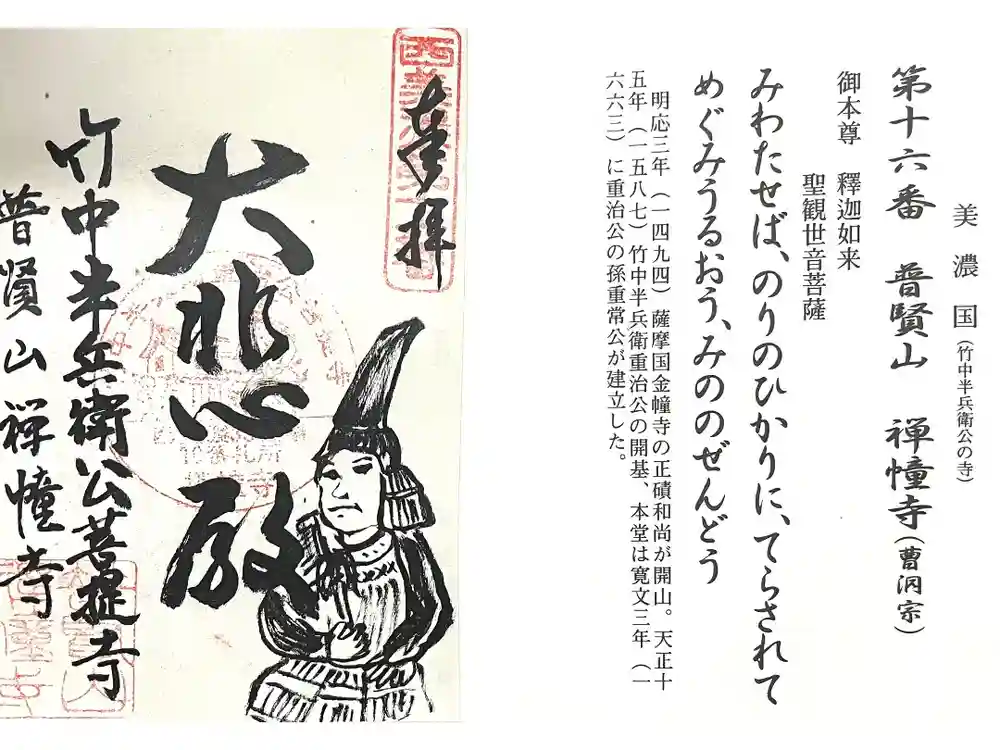 美濃国（竹中半兵衛公の寺）
第十六番　普賢山　禅幢寺（曹洞宗）
御本尊　釋迦如来
聖観世音菩薩
みわたせば、のりのひかりに、てらされて
めぐみうるおう、みののぜんどう
明応三年（一四九四）薩摩国金幢寺の正磧和尚が開山。天正十
五年（一五八七）竹中半兵衛重治公の開基、本堂は寛文三年（一
六六三）に重治公の孫重常公が建立した。
奉拝
大悲殿
竹中半兵衛公菩提寺
普賢山禅幢寺